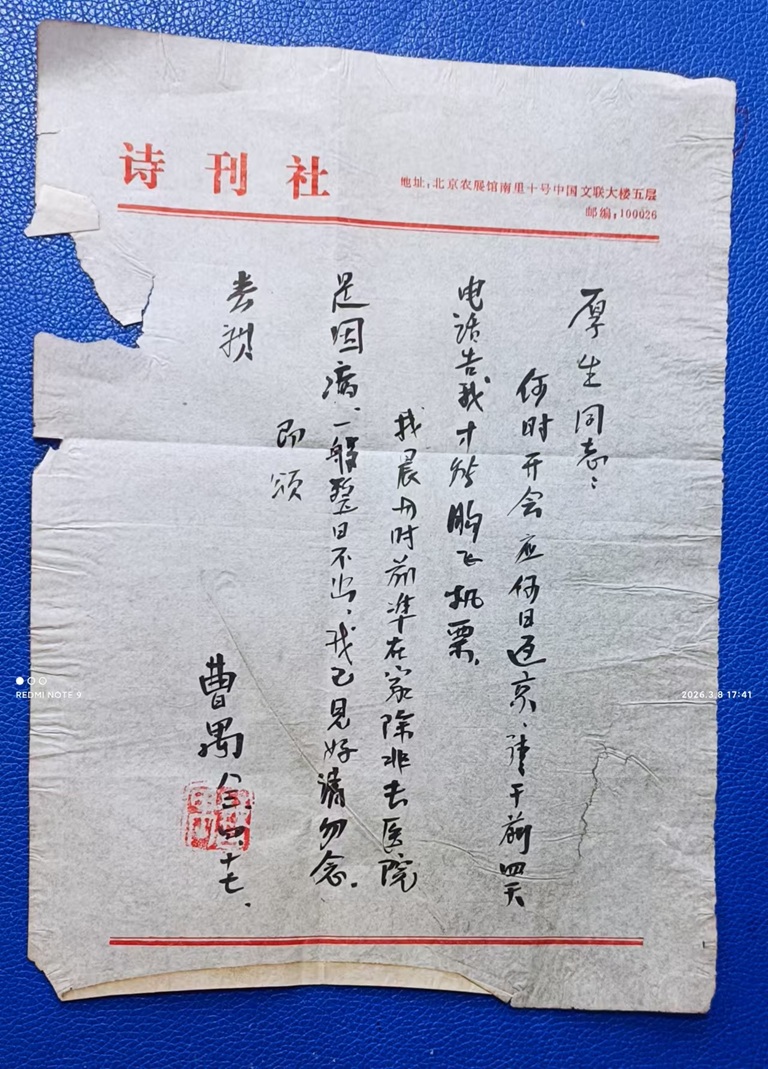 诗刊社
地址:北京农展馆南里十号中国文联大楼五层
邮编:100026
厚生同志:
何时开会应何日返京,请于前四天
电话告我才能购飞机票。
我晨 时前準在家除非去医院
是因病、一般整日不出,我已见好请勿念。
即颂
春祺
曹禺 八三、四、十七、
REDMI NOTE 9
2026.3.8 17:41